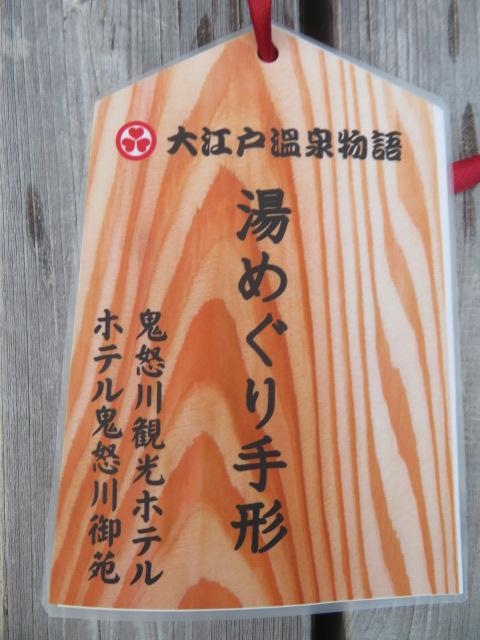 大江戸温泉物語
湯めぐり手形
鬼怒川観光ホテル
ホテル鬼怒川御苑